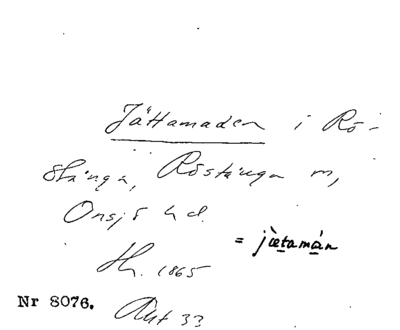 Jättamaden i Rö-
stånga, Röstånga sn,
Onsjö hd.
= jætamán
Hr. 1865
Nr 8076. Ant 33